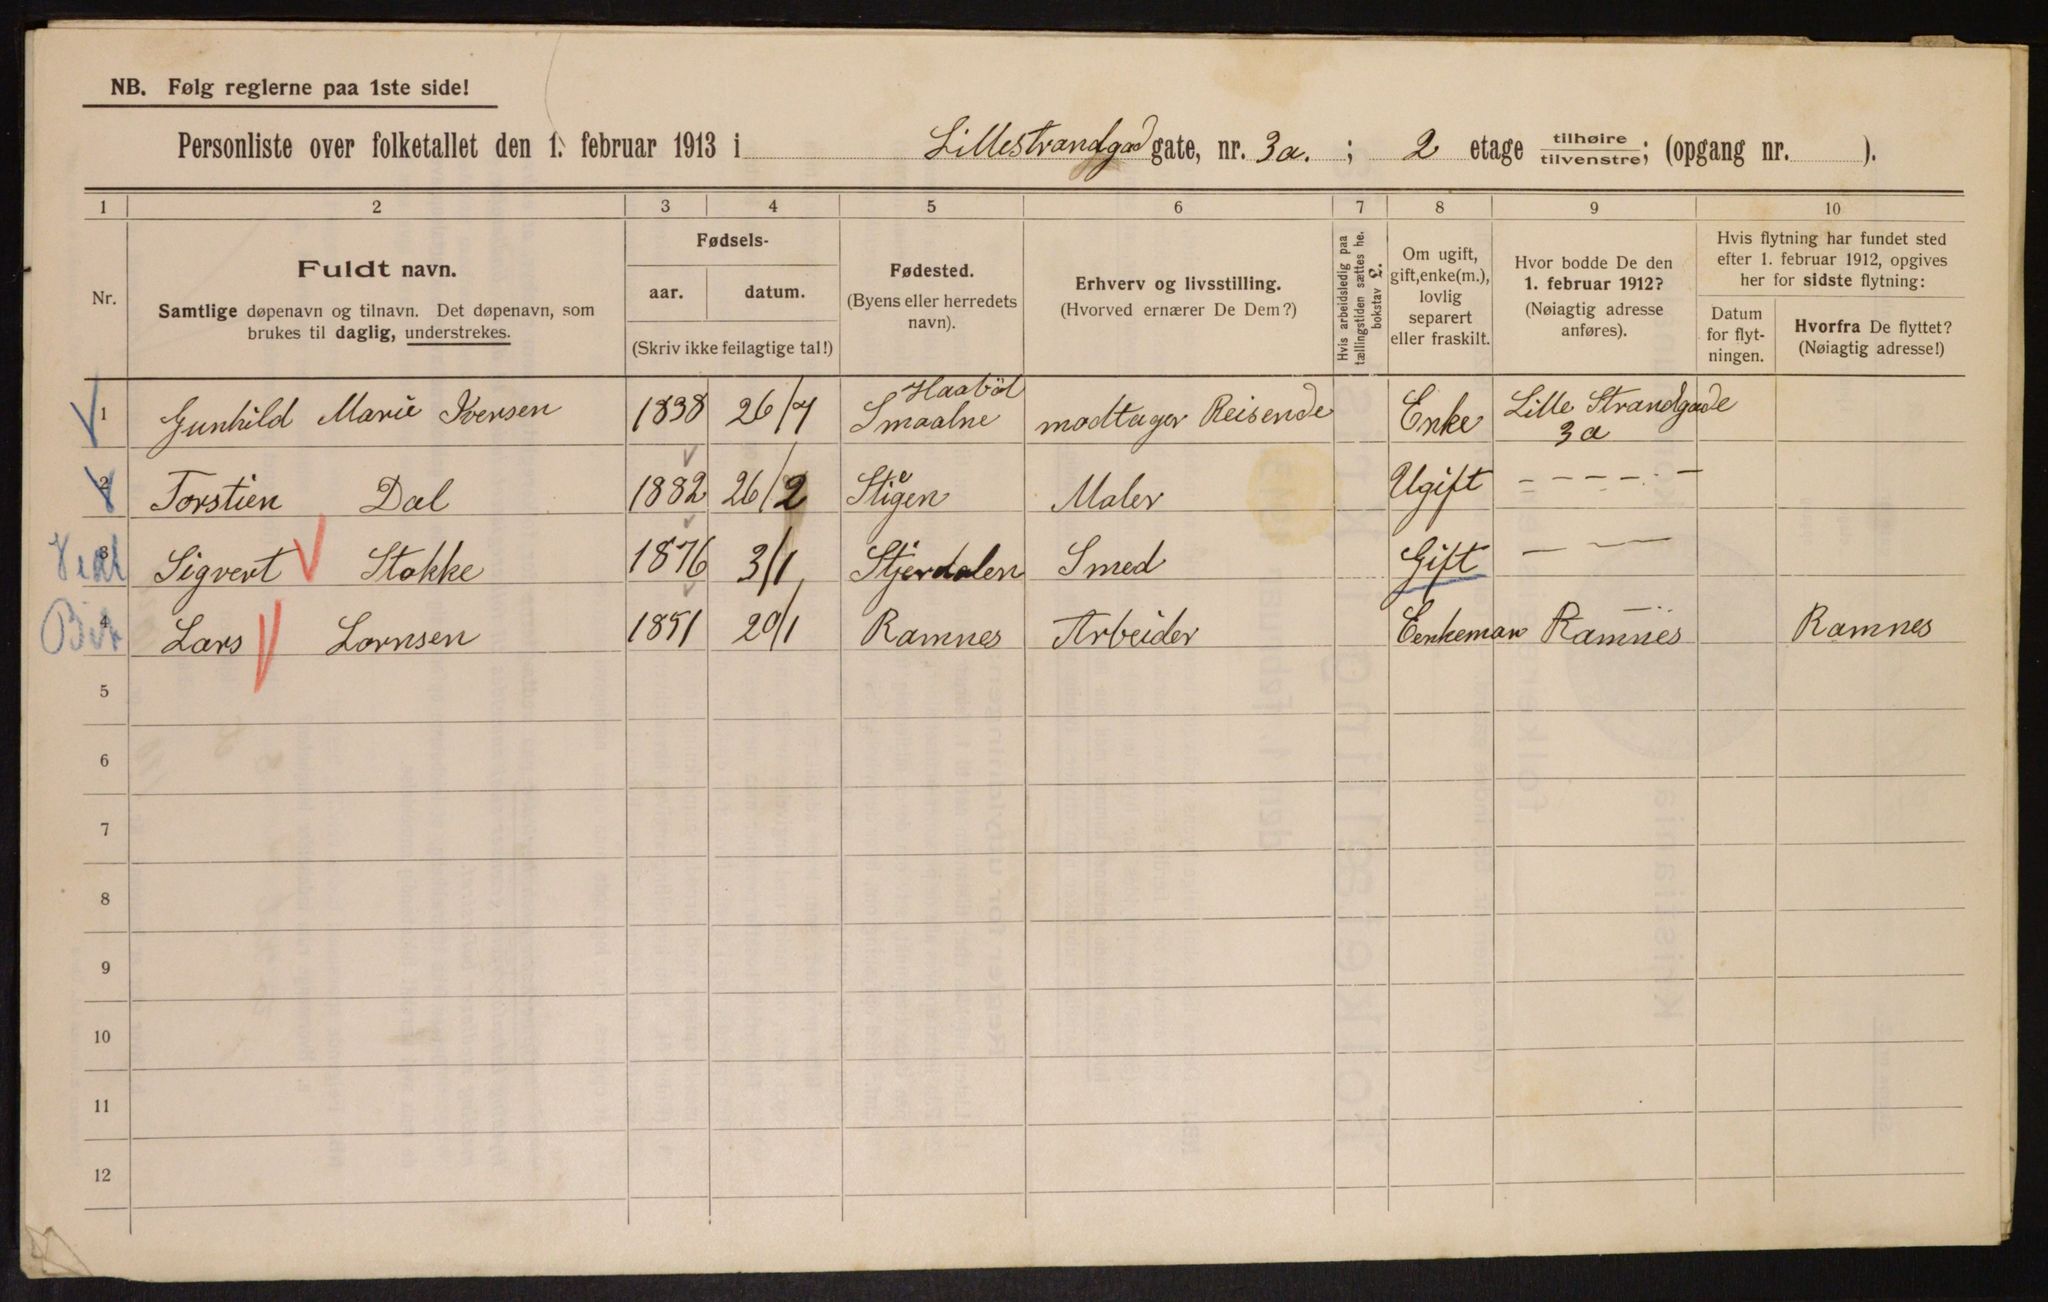 NB. Følg reglerne paa 1ste side!
Personliste over folketallet den 1. februar 1913 i Lillestrandgad gate, nr. 3a. ; 2 etage tilhøire tilvenstre; (opgang nr. ).
1 2 3 4 5 6 7 8 9 10
Nr.
Fuldt navn.
Samtlige døpenavn og tilnavn. Det døpenavn, som
brukes til daglig, understrekes.
Fødsels-
aar. datum.
(Skriv ikke feilagtige tal!)
Fødested.
(Byens eller herredets
navn).
Erhverv og livsstilling.
(Hvorved ernærer De Dem?)
Hvis arbeidsledig paa
tællingstiden sættes her
bokstav L.
Om ugift,
gift, enke(m.),
lovlig
separert
eller fraskilt.
Hvor bodde De den
1. februar 1912?
(Nøiagtig adresse
anføres).
Hvis flytning har fundet sted
efter 1. februar 1912, opgives
her for sidste flytning:
Datum
for flyt-
ningen.
Hvorfra De flyttet?
(Nøiagtig adresse!)
1 Gunhild Marie Iversen 1838 26/7 Haaböl Smaalne modtager Reisende Enke Lille Strandgade 3a
2 Torstien Dal 1882 26/2 Maler Ugift - - - - - -
3 Sigvert Stokke 1876 3/1 Stjerdalen Smed Gift - -
4 Lars Lornsen 1851 20/1 Ramnes Arbeider Eenkeman Ramnes Ramnes
5
6
7
8
9
10
11
12